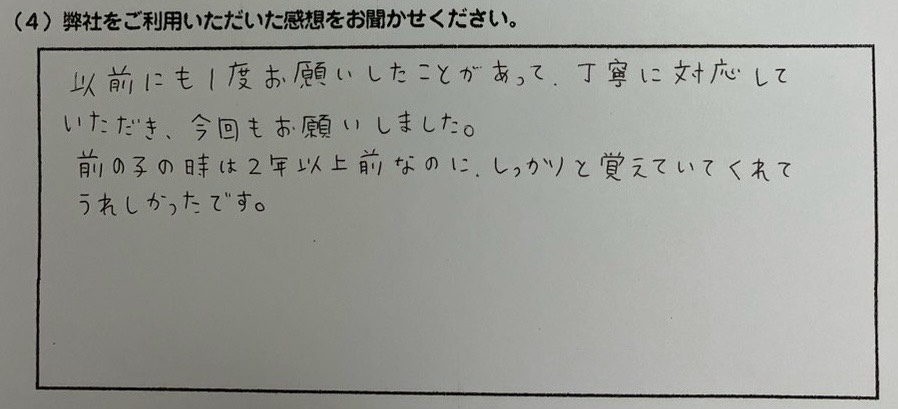 （4）弊社をご利用いただいた感想をお聞かせください。
以前にも1度お願いしたことがあって、丁寧に対応して
いただき、今回もお願いしました。
前の子の時は2年以上前なのに、しっかりと覚えていてくれて
うれしかったです。